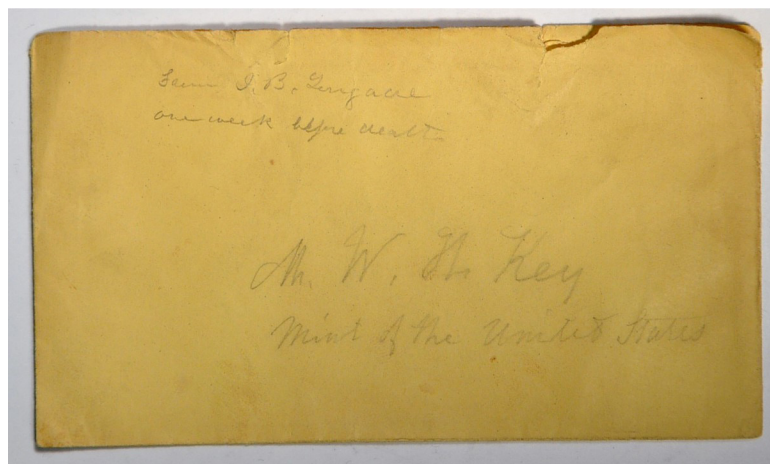 From J. B. Longacre
one week before death
Mr. W. H. Key
Mint of the United States